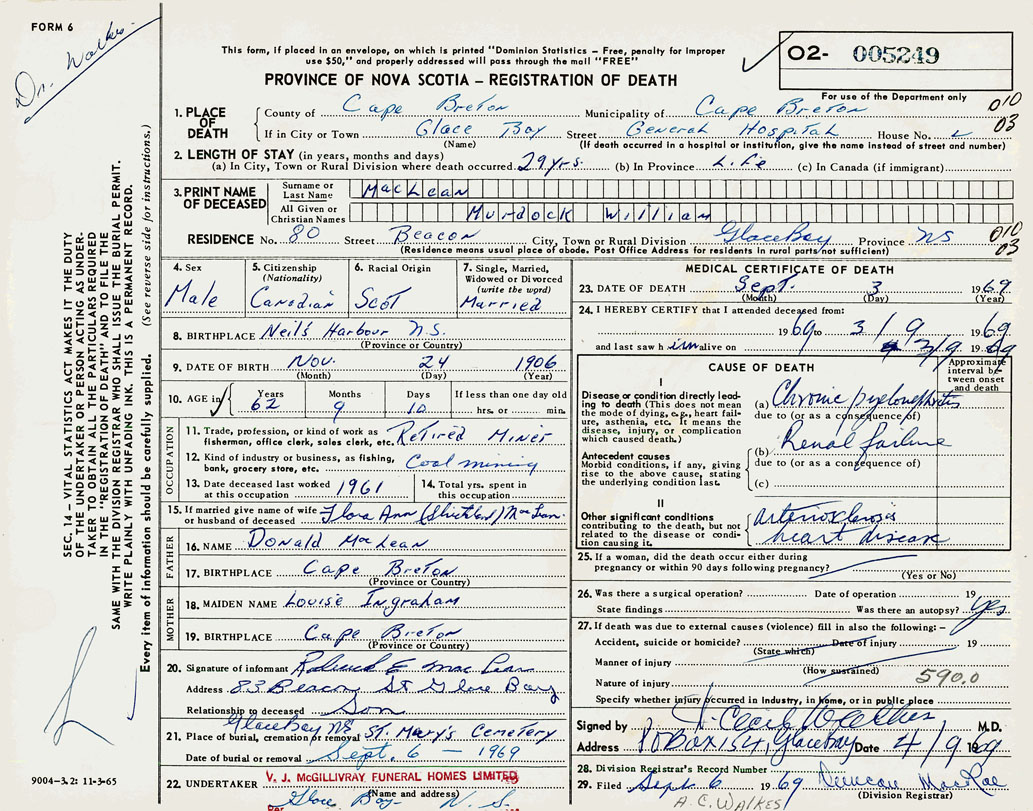 FORM 6
Dr. Walkes
This form, if placed in an envelope, on which is printed "Dominion Statistics – Free, penalty for improper
use $50," and properly addressed will pass through the mail "FREE"
O2- 005249
For use of the Department only
PROVINCE OF NOVA SCOTIA – REGISTRATION OF DEATH
010
03
1. PLACE OF DEATH
County of Cape Breton Municipality of Cape Breton
If in City or Town Glace Bay Street General Hospital House No.
(Name) (If death occurred in a hospital or institution, give the name instead of street and number)
2. LENGTH OF STAY (in years, months and days)
(a) In City, Town or Rural Division where death occurred 29 yrs. (b) In Province Life (c) In Canada (if immigrant)
3. PRINT NAME OF DECEASED
Surname or Last Name MacLean
All Given or Christian Names Murdock William
RESIDENCE No. 80 Street Beacon City, Town or Rural Division Glace Bay Province NS
010
03
(Residence means usual place of abode. Post Office Address for residents in rural parts not sufficient)
4. Sex Male
5. Citizenship (Nationality) Canadian
6. Racial Origin Scot
7. Single, Married, Widowed or Divorced (write the word) Married
8. BIRTHPLACE Neil's Harbour N.S.
(Province or Country)
9. DATE OF BIRTH Nov. 24 1906
(Month) (Day) (Year)
10. AGE in Years 62 Months 9 Days 10 If less than one day old hrs. or min.
OCCUPATION
11. Trade, profession, or kind of work as fisherman, office clerk, sales clerk, etc. Retired Miner
12. Kind of industry or business, as fishing, bank, grocery store, etc. Coal mining
13. Date deceased last worked at this occupation 1961
14. Total yrs. spent in this occupation
15. If married give name of wife or husband of deceased Flora Ann (Strickland) MacLean
FATHER
16. NAME Donald MacLean
17. BIRTHPLACE Cape Breton
(Province or Country)
MOTHER
18. MAIDEN NAME Louise Ingraham
19. BIRTHPLACE Cape Breton
(Province or Country)
20. Signature of informant E MacLean
Address 83 Beacon St Glace Bay
Relationship to deceased Son
Glace Bay NS
21. Place of burial, cremation or removal St. Mary's Cemetery
Date of burial or removal Sept. 6 – 1969
22. UNDERTAKER V. J. McGILLIVRAY FUNERAL HOMES LIMITED
(Name and address)
Per Glace Bay N.S.
MEDICAL CERTIFICATE OF DEATH
23. DATE OF DEATH Sept. 3 1969
(Month) (Day) (Year)
24. I HEREBY CERTIFY that I attended deceased from:
1969 to 3/9 1969
and last saw him alive on 3/9 1969
CAUSE OF DEATH
Approximate interval between onset and death
I
Disease or condition directly leading to death (This does not mean the mode of dying, e.g., heart failure, asthenia, etc. It means the disease, injury, or complication which caused death.)
(a) Chronic pyelonephritis
due to (or as a consequence of)
Antecedent causes
Morbid conditions, if any, giving rise to the above cause, stating the underlying condition last.
(b) Renal failure
due to (or as a consequence of)
(c)
II
Other significant conditions contributing to the death, but not related to the disease or condition causing it.
arteriosclerosis
heart disease
25. If a woman, did the death occur either during
pregnancy or within 90 days following pregnancy?
(Yes or No)
26. Was there a surgical operation? Date of operation 19
State findings Was there an autopsy? yes
27. If death was due to external causes (violence) fill in also the following: –
Accident, suicide or homicide? Date of injury 19
(State which)
Manner of injury
(How sustained)
Nature of injury 590.0
Specify whether injury occurred in Industry, in home, or in public place
Signed by J. Cecil Walkes M.D.
Address PO Box 154, Glace Bay Date 4/9 1969
28. Division Registrar's Record Number
29. Filed Sept. 6 1969 Duncan MacRae
(Division Registrar)
A.C. WALKES
SEC. 14 – VITAL STATISTICS ACT MAKES IT THE DUTY
OF THE UNDERTAKER OR PERSON ACTING AS UNDER-
TAKER TO OBTAIN ALL THE PARTICULARS REQUIRED
IN THE "REGISTRATION OF DEATH" AND TO FILE THE
SAME WITH THE DIVISION REGISTRAR WHO SHALL ISSUE THE BURIAL PERMIT.
WRITE PLAINLY WITH UNFADING INK. THIS IS A PERMANENT RECORD.
Every item of information should be carefully supplied. (See reverse side for instructions.)
9004-3.2: 11-3-65